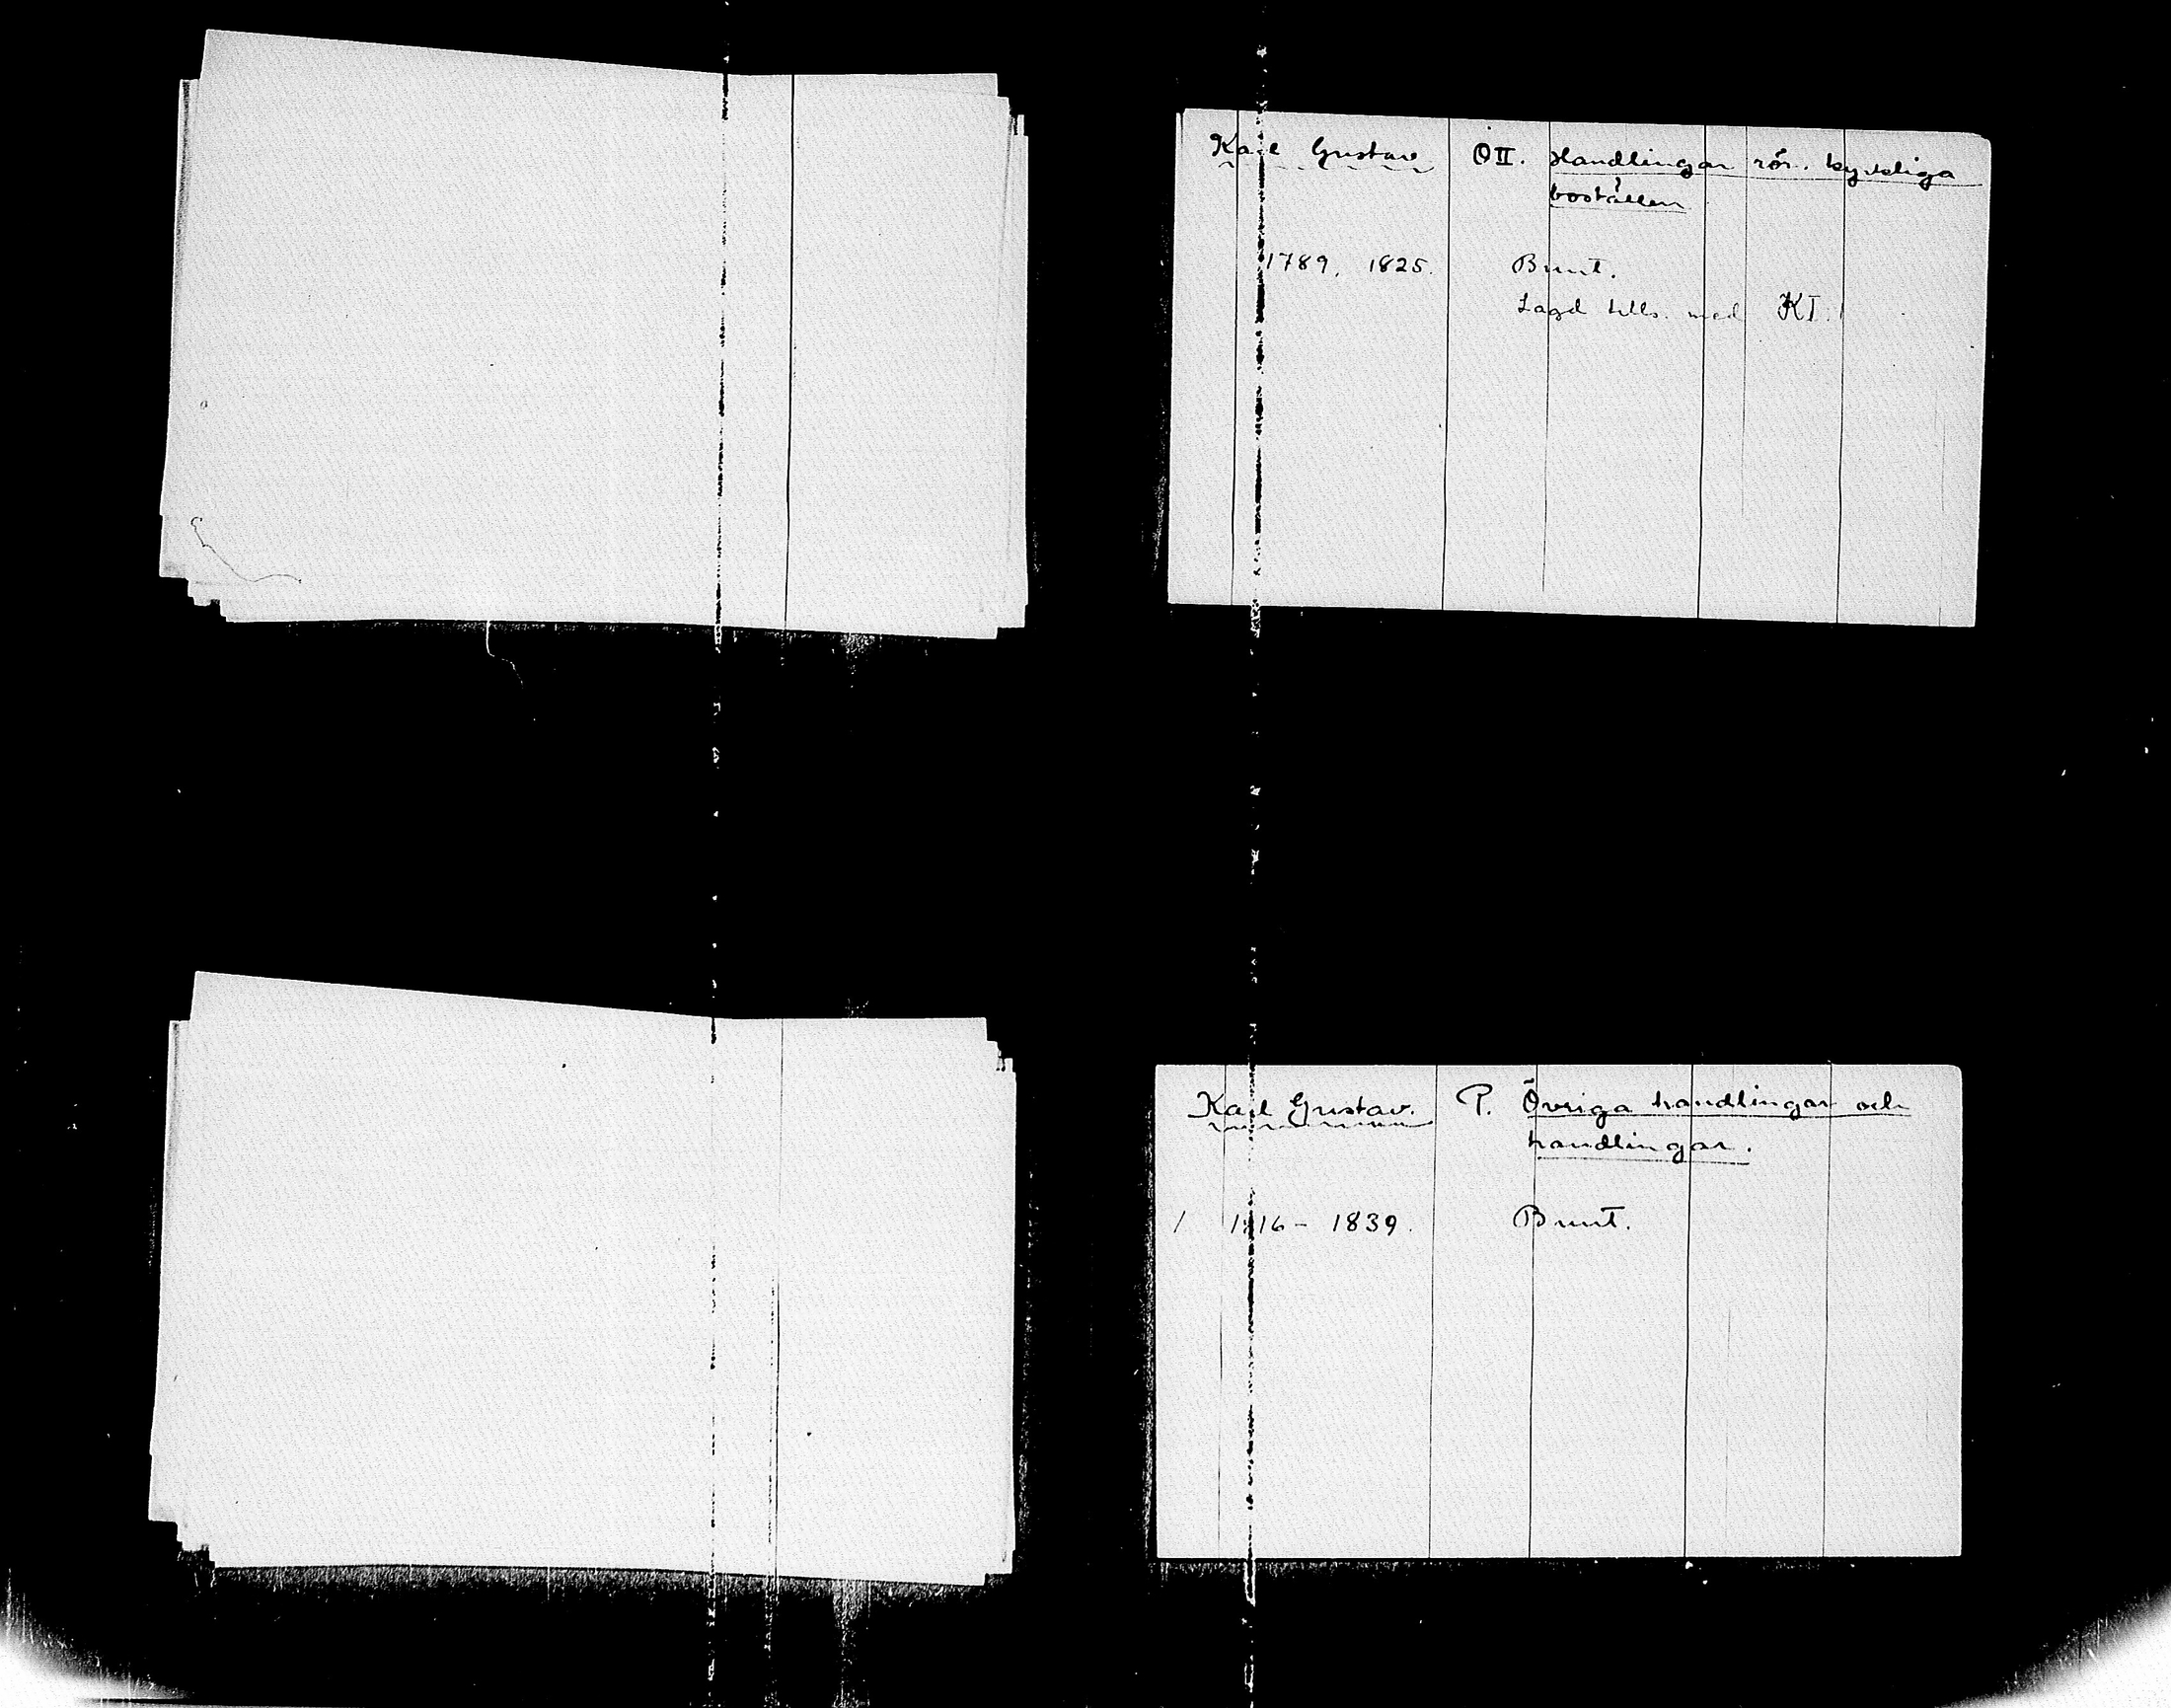 Karl Gustav OII. Handlingar rör. kyrkliga
boställen
1789, 1825. Bunt.
Lagd tills. med KI.
Karl Gustav. P. Övriga handlingar och
handlingar.
1 1816 - 1839. Bunt.